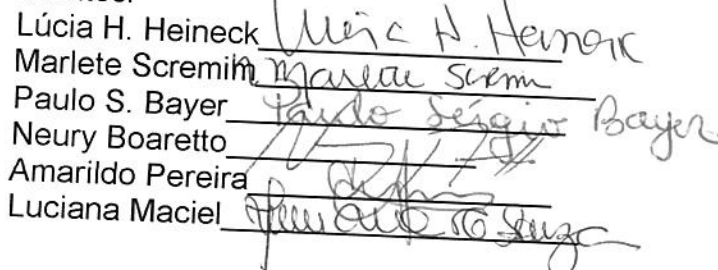 Lúcia H. Heineck Lúcia H. Heineck
Marlete Scremin Marlete Scremin
Paulo S. Bayer Paulo Sérgio Bayer
Neury Boaretto
Amarildo Pereira
Luciana Maciel